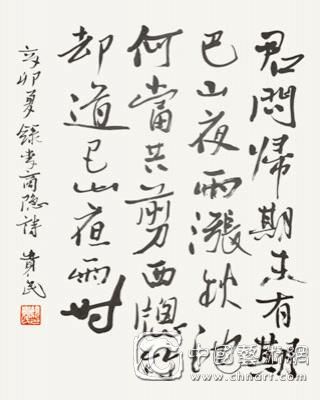 君問歸期未有期
巴山夜雨漲秋池
何當共剪西牕烛
却道巴山夜雨时
辛卯夏錄李商隐詩 貴民
中國藝術網
www.chnart.com